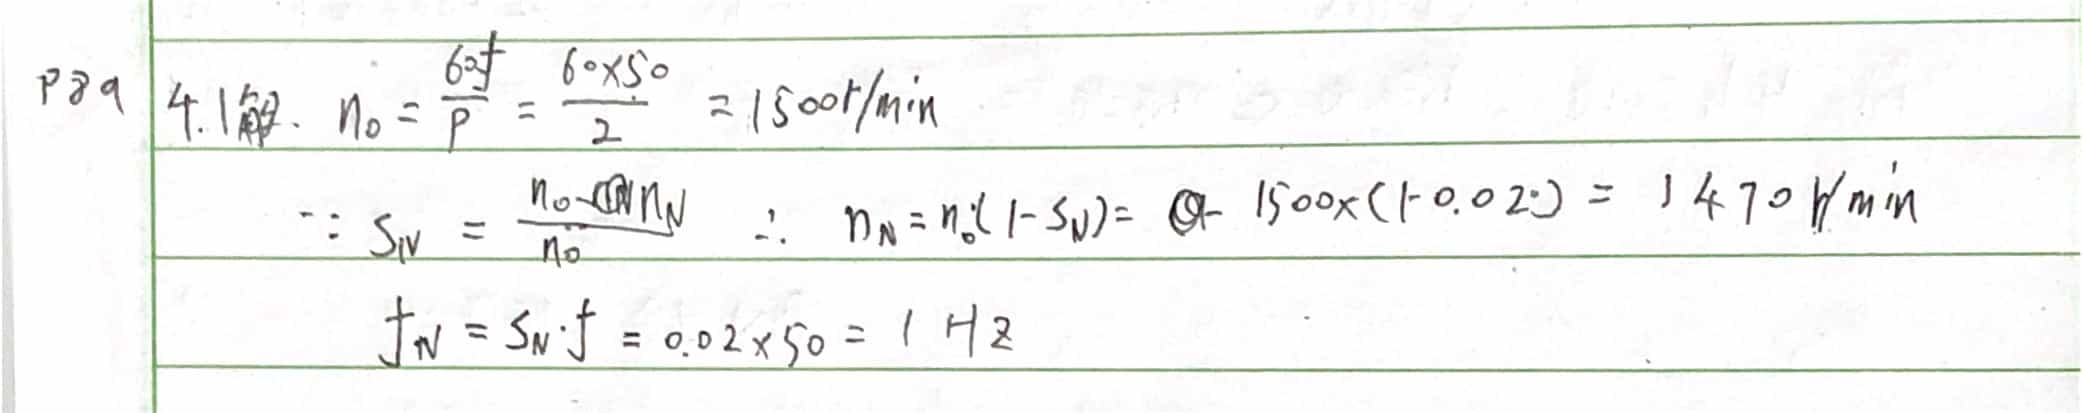 P89 4.1解. n₀ = 60f/P = 60×50/2 = 1500r/min
∵ S_N = (n₀-n_N)/n₀ ∴ n_N = n₀(1-S_N) = 1500×(1-0.02) = 1470r/min
f_N = S_N·f = 0.02×50 = 1 Hz